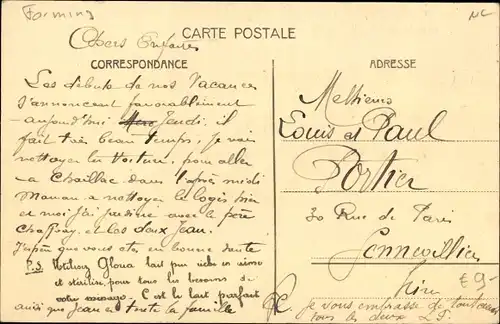 Forming
ML
CARTE POSTALE
Chers Enfants
CORRESPONDANCE
ADRESSE
Les débuts de nos Vacances
s'annoncent favorablement
aujourd'hui Jeudi. il
fait très beau temps. Je vais
nettoyer la voiture, pour aller
a Chaillac dans l'après midi
Maman a nettoyer le loges hier
et moi j'ai jardiné avec le père
et les deux Jean.
J'espère que vous êtes en bonne santé
P.S. Utilisez Gloria lait pur riche en crème
et stérilisé, pour tous les besoins de
votre ménage. C'est le lait parfait
ainsi que Jean et toute la famille
Messieurs
Louis et Paul
Portier
30 Rue de Paris
Gennevilliers
Seine
€ 9-
Je vous embrasse de tout cœur
tous les deux L.P.